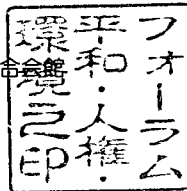 フォーラム
平和・人権・
環境之印
合会館